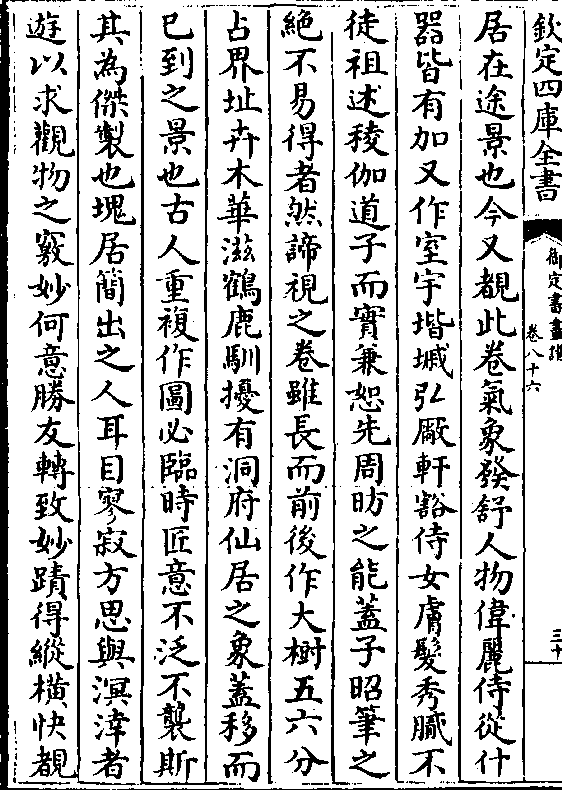 欽定四庫全書
御定書畫譜
卷八十六
三十
居在途景也今又覩此卷氣象發舒人物偉麗侍從什
器皆有加又作室宇堦墄弘厰軒豁侍女膚髮秀膩不
徒祖述稜伽道子而實兼恕先周昉之能蓋子昭筆之
絶不易得者然諦視之卷雖長而前後作大樹五六分
占界址卉木華滋鶴鹿馴擾有洞府仙居之象蓋移而
已到之景也古人重複作圖必臨時匠意不泛不襲斯
其為傑製也塊居簡出之人耳目寥寂方思與溟涬者
遊以求觀物之竅妙何意勝友轉致妙蹟得縱横快覩